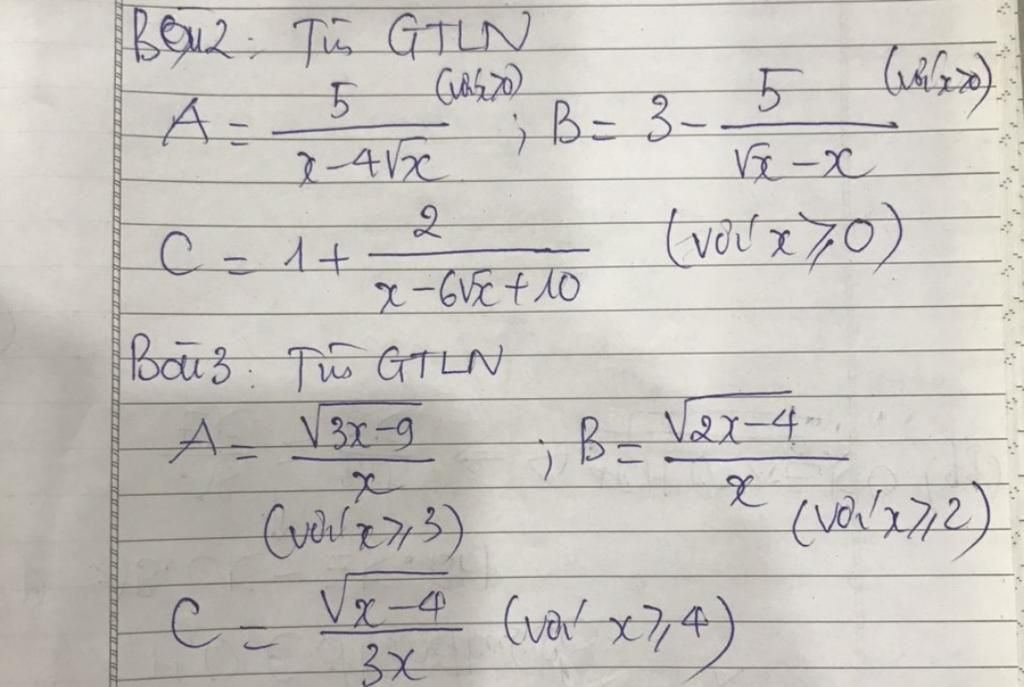 Bài 2: Tìm GTLN
A = 5/(x - 4√x) (với x>0) ; B = 3 - 5/(√x - x) (với x>0)
C = 1 + 2/(x - 6√x + 10) (với x ⩾ 0)
Bài 3: Tìm GTLN
A = √(3x-9)/x (với x ⩾ 3) ; B = √(2x-4)/x (với x ⩾ 2)
C = √(x-4)/3x (với x ⩾ 4)